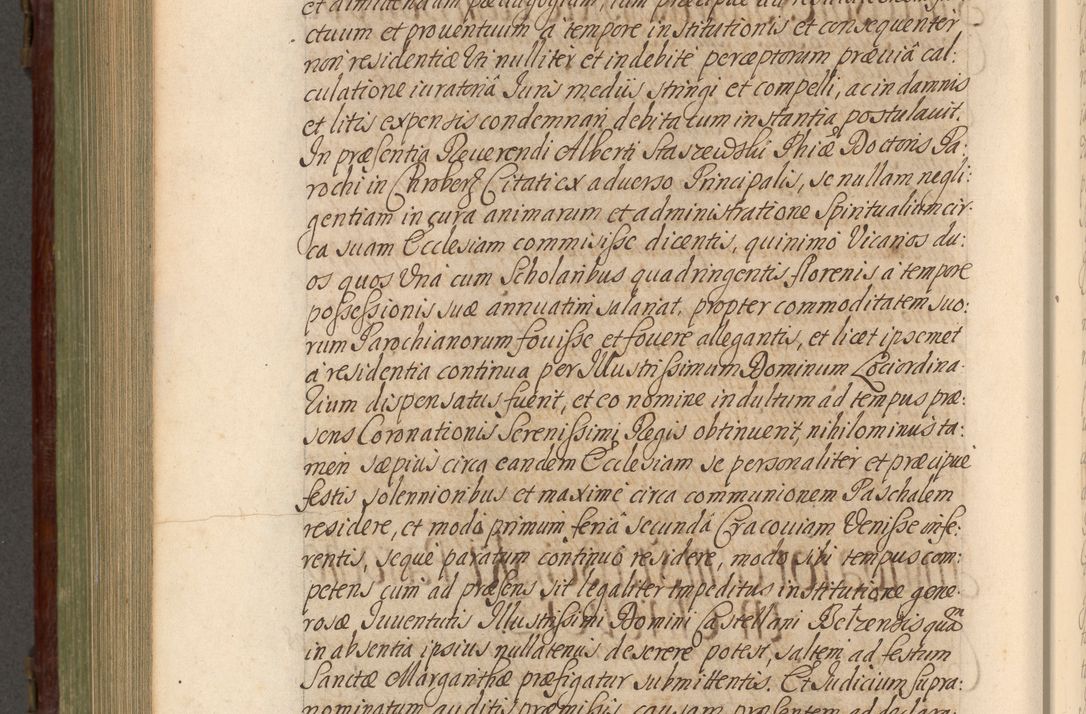 et dimittendum pædagogium, tum præcipue ad
ctuum et prouentuum à tempore institutionis et consequenter
non residentiæ Vti nulliter et indebitè perceptorum præuiâ cal:
culatione iuratoriâ Iuris mediis stringi et compelli, ac in damnis
et litis expensis condemnari, debita cum instantia postulauit.
In præsentia Reuerendi Alberti Staszewski Phiæ Doctoris Pa:
rochi in Chroberz Citati ex aduerso Principalis, se nullam negli:
gentiam in cura animarum et administratione Spiritualium cir:
ca suam Ecclesiam commisisse dicentis, quinimò Vicarios du:
os quos Vnà cum Scholaribus quadringentis florenis à tempore
possessionis suæ annuatim salariat, propter commoditatem suo:
rum Parochianorum fouisse et fouere allegantis, et licet ipsemet
à residentia continua per Illustrissimum Dominum Loci ordina:
rium dispensatus fuerit, et eo nomine indultum ad tempus præ:
sens Coronationis Serenissimi Regis obtinuerit, nihilominus ta:
men sæpius circa eandem Ecclesiam se personaliter et præcipuè
festis solennioribus et maximè circa communionem Paschalem
residere, et modo primum feriâ secundâ Cracouiam Venisse infe:
rentis, seque paratum continuò residere, modo sibi tempus com:
petens cum ad præsens sit legaliter impeditus institutione gene:
rosæ Iuuentutis Illustrissimi Domini Castellani Belzensis quam
in absentia ipsius nullatenus deserere potest, saltem ad festum
Sanctæ Margarithæ præfigatur submittentis. Et Iudicium supra:
nominatum auditis præmissis, causam præsentem ad declara: